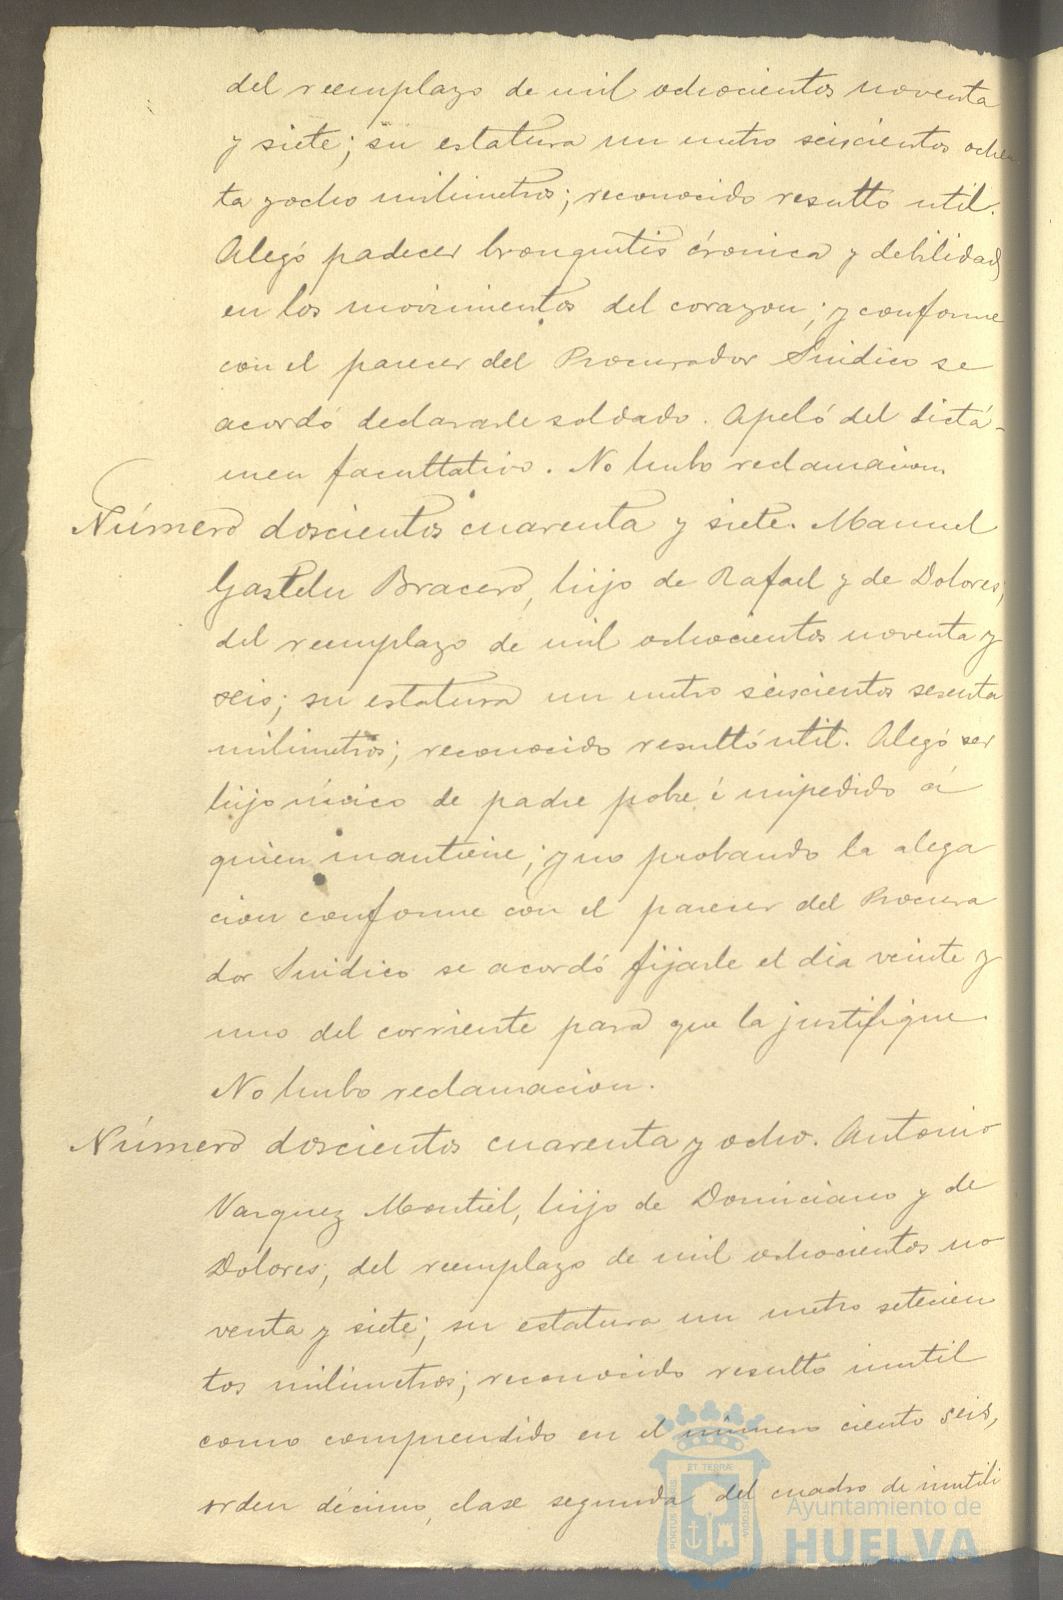 del reemplazo de mil ochocientos noventa
y siete; su estatura un metro seiscientos ochen
ta y ocho milimetros; reconocido resultó util.
Alegó padecer bronquitis crónica y debilidad
en los movimientos del corazon; y conforme
con el parecer del Procurador Sindico se
acordó declararle soldado. Apeló del dictá-
men facultativo. No hubo reclamacion.
Número doscientos cuarenta y siete. Manuel
Gastelu Bracero, hijo de Rafael y de Dolores,
del reemplazo de mil ochocientos noventa y
seis; su estatura un metro seiscientos sesenta
milimetros; reconocido resultó util. Alegó ser
hijo único de padre pobre é impedido á
quien mantiene; y no probando la alega
cion conforme con el parecer del Procura
dor Sindico se acordó fijarle el dia veinte y
uno del corriente para que la justifique.
No hubo reclamacion.
Número doscientos cuarenta y ocho. Antonio
Vazquez Montiel, hijo de Domiciano y de
Dolores, del reemplazo de mil ochocientos no
venta y siete; su estatura un metro setecien
tos milimetros; reconocido resultó inutil
como comprendido en el número ciento seis,
orden décimo, clase segunda del cuadro de inutili
ET TERRÆ
PORTUS
CUSTODIA
Ayuntamiento de
HUELVA